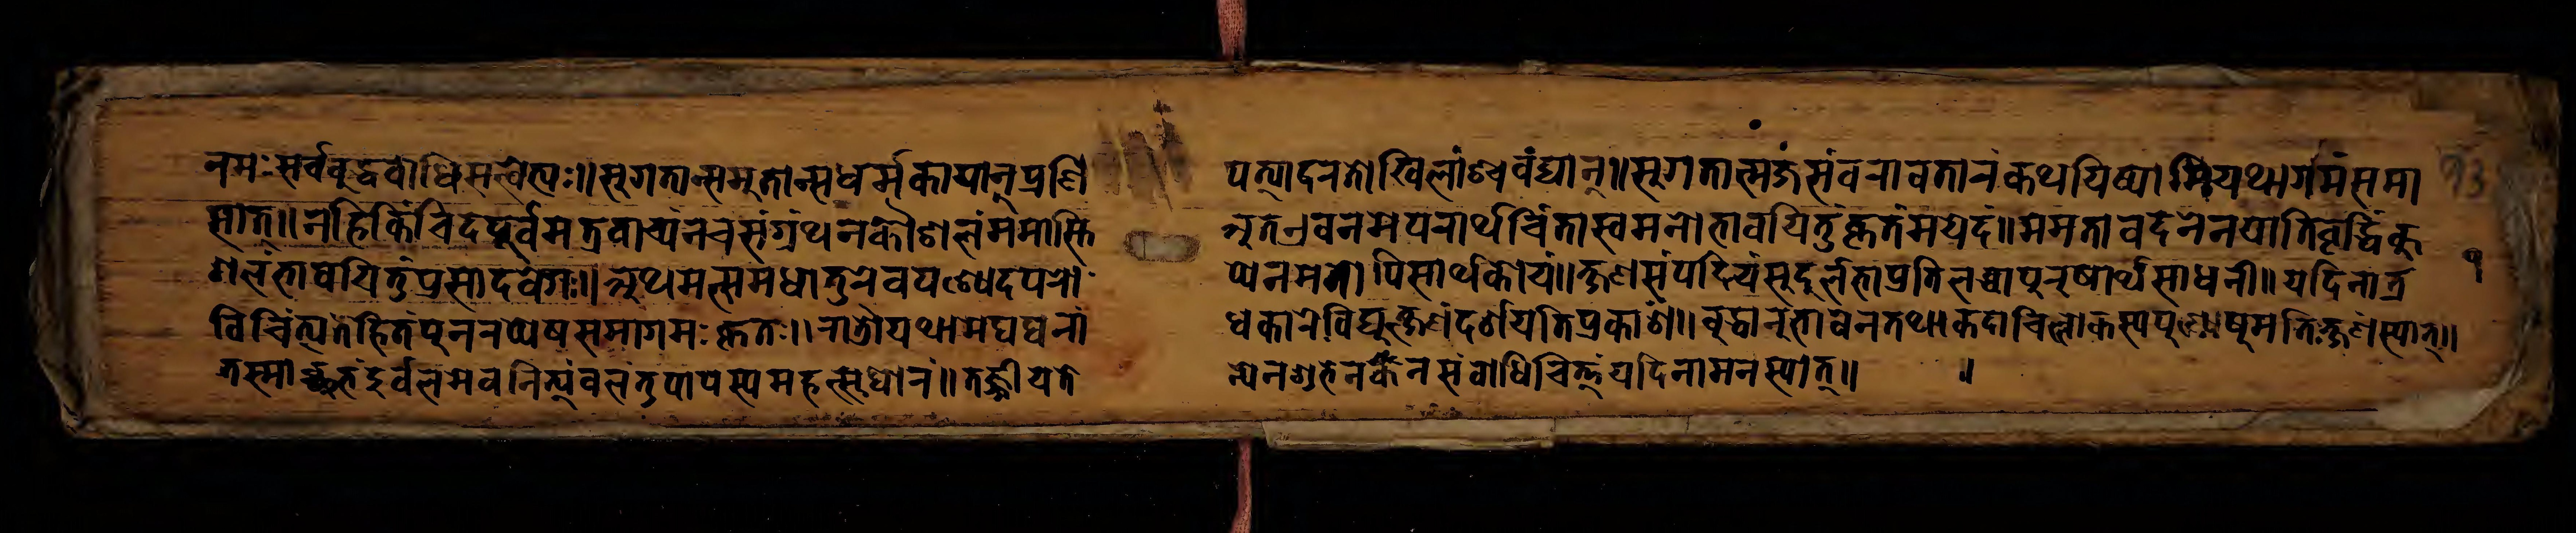 नमः सर्वबुद्धबोधिसत्वेभ्यः॥सुगतान्ससुतान्सधर्मकायान्प्रणिपत्यादरतोखिलांश्चवंद्यान्॥सुगतात्मजसंवरावतारंकथयिष्यामियथागमंसमा
सात्॥नहिकिंचिदपूर्वमत्रवाच्यंनचसंग्रंथनकौशलंममास्तिअतएवनमेपरार्थचिंतास्वमनोभावयितुंकृतंमयेदं॥ममतावदनेनयातिवृद्धिंकु
शलंभावयितुंप्रसादवेगः॥अथमत्समधातुरेवपश्येदपरोप्येनमतोपिसार्थकोयं॥क्षणसंपदियंसुदुर्लभाप्रतिलब्धापुरुषार्थसाधनी॥यदिनात्र
१
विचिंत्यतेहितंपुनरप्येषसमागमःकृतः॥रात्रौयथामेघघनांधकारेविद्युत्क्षणंदर्शयतिप्रकाशं॥बुद्धानुभावेनतथाकदाचिल्लोकस्यपुण्येषुमतिःक्षणंस्यात्॥
तस्माच्छुभंदुर्बलमेवनित्यंबलंतुपापस्यमहत्सुघोरं॥तज्जीयतेन्येनशुभेनकेनसंबोधिचित्तंयदिनामनस्यात्॥ ॥